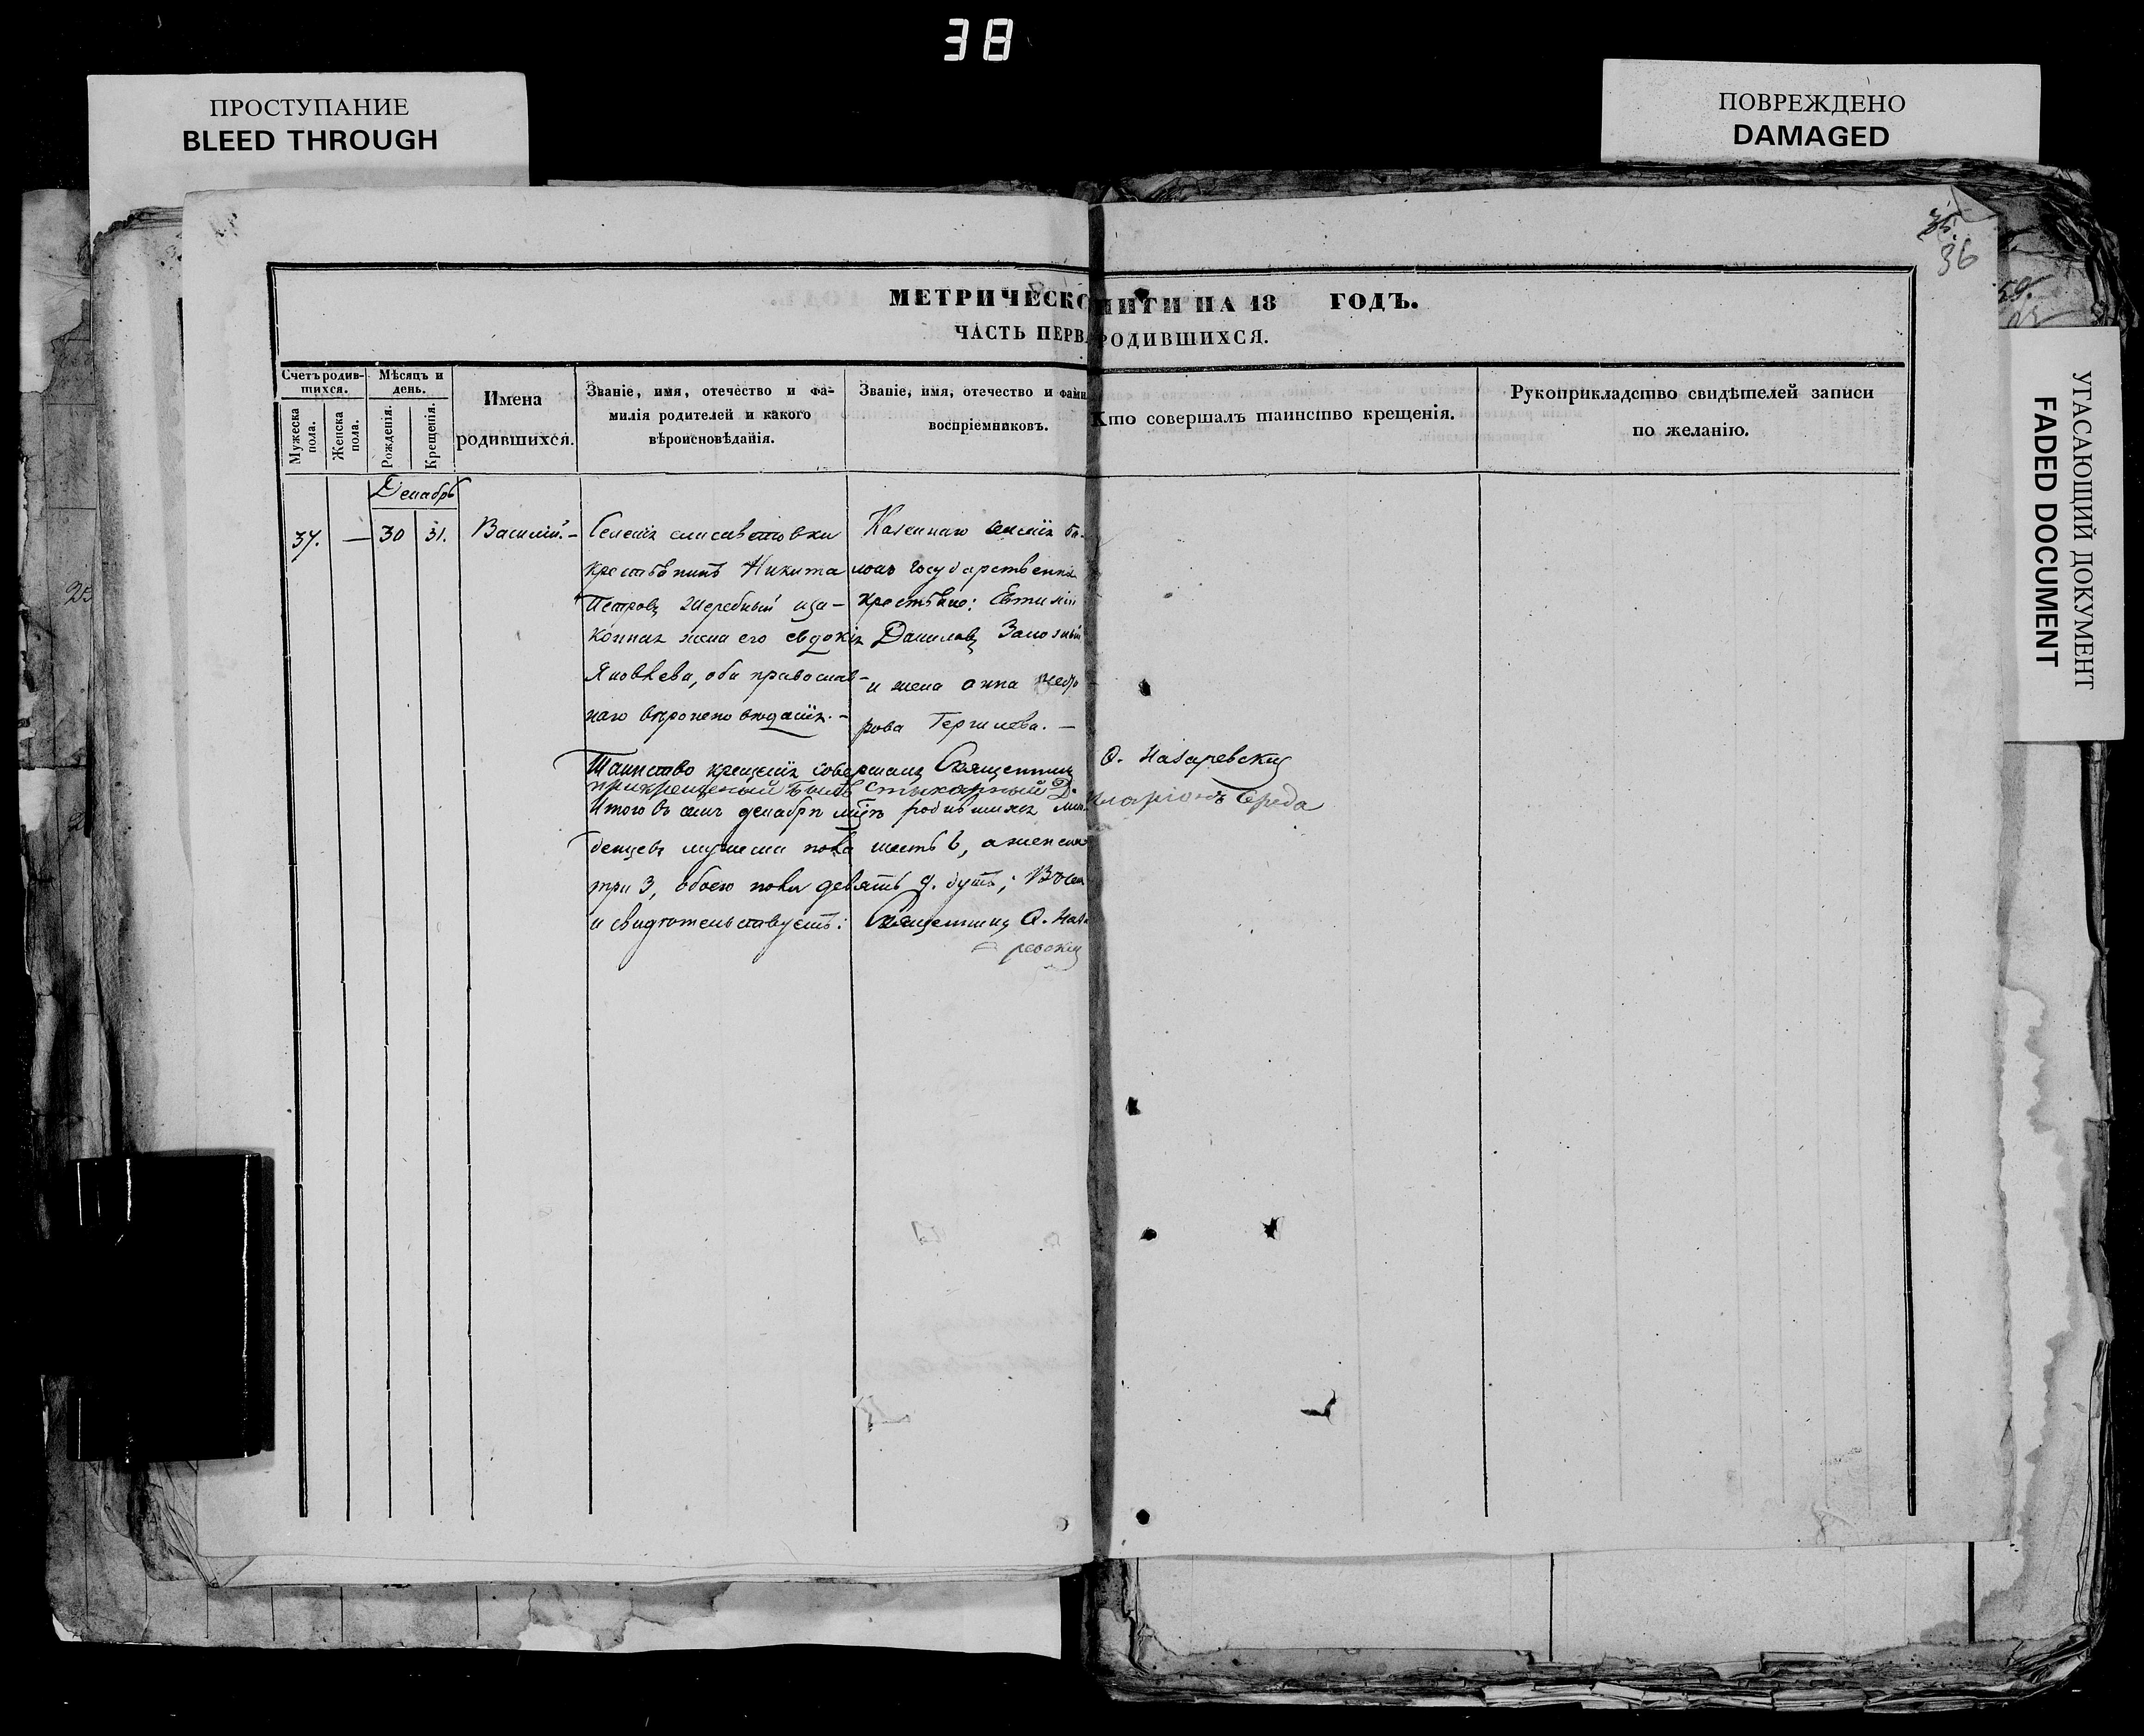 38
ПРОСТУПАНИЕ
BLEED THROUGH
ПОВРЕЖДЕНО
DAMAGED
УГАСАЮЩИЙ ДОКУМЕНТ
FADED DOCUMENT
36
МЕТРИЧЕСКО НИГИ НА 18 ГОДЪ.
ЧАСТЬ ПЕРВА РОДИВШИХСЯ.
Счетъ родив-
шихся.
Мужеска
пола.
Женска
пола.
Мѣсяцъ и
день.
Рожденія.
Крещенія.
Имена
родившихся.
Званіе, имя, отечество и фа-
милія родителей и какого
вѣроисповѣданія.
Званіе, имя, отечество и фами
воспріемниковъ.
Кто совершалъ таинство крещенія.
Рукоприкладство свидѣтелей записи
по желанію.
Декабрь
37. — 30 31. Василій. —
Селенія елисаветовки
крестьянинъ Никита
Петровъ за-
конная жена его евдокія
Яковлева, оба православ-
наго вѣроисповѣданія. —
Казеннаго селенія
государственны
крестьяне: Евтимій
Даниловъ
и жена анна
рова —
Таинство крещенія совершалъ Священникъ Ѳ. Назаревскій
при крещеніи былъ стихарный Д. Иларіонъ Середа
Итого въ семъ декабрѣ мцѣ родившихся мла
денцевъ мужеска пола шесть 6, а женска
три 3, обоего пола девять 9. душъ; В
и свидѣтельствуетъ: Священникъ Ѳ. Наза
ревскій